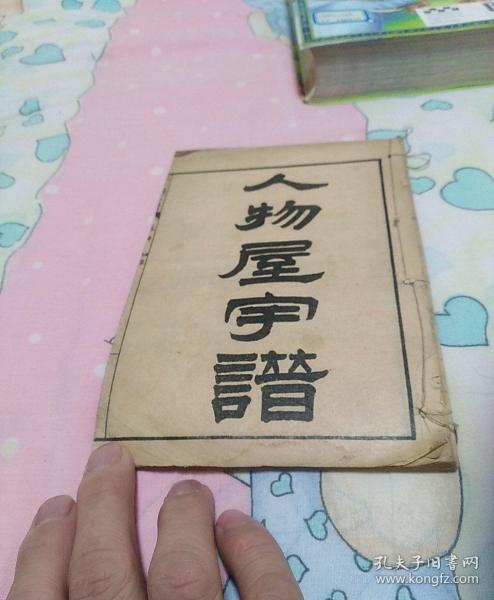 人物屋宇譜
孔夫子旧书网
www.kongfz.com